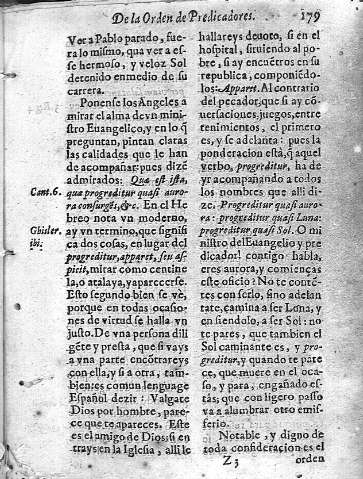 De la Orden de Predicadores. 179
Ver a Pablo parado, fue-
ra lo mismo, que ver a es-
se hermoso, y veloz Sol
detenido en medio de su
carrera.
Ponense los Angeles a
mirar el alma de vn minis-
tro Euangelico, y en lo q̃
preguntan, pintan claras
las calidades que le han
de acompañar: pues dizẽ
admirados: Quæ est ista,
Cant. 6.
quæ progreditur quasi auro-
ra consurgẽs, &c. En el He-
breo nota vn moderno,
Ghisler.
ibi.
ay vn termino, que signifi
ca dos cosas, en lugar del
progreditur, apparet, seu as-
picit, mirar como centine
la, o atalaya, y aparecerse.
Esto segundo bien se vè,
porque en todas ocasio-
nes de virtud se halla vn
justo. De vna persona dili
gẽte y presta, que si vays
a vna parte encõtrareys
con ella, y si a otra, tam-
bien: es comun lenguage
Español dezir: Valgate
Dios por hombre, pare-
ce que te apareces. Este
es el amigo de Dios; si en
trays en la Iglesia, alli le
hallareys deuoto, si en el
hospital, siruiendo al po-
bre, si ay encuẽtros en su
republica, componiẽdo-
los: Apparet. Al contrario
del pecador, que si ay cõ-
uersaciones, juegos, entre
tenimientos, el primero
es, y se adelanta: pues la
ponderacion està, q̃ aquel
verbo, progreditur, ha de
yr acompañando a todos
los nombres que alli di-
ze. Progreditur quasi auro-
ra: progreditur quasi Luna:
progreditur quasi Sol. O mi
nistro del Euangelio y pre
dicador! contigo habla,
eres aurora, y comienças
este oficio? No te contẽ-
tes con serlo, sino adelan
tate, camina a ser Luna, y
en siendolo, a ser Sol: no
te pares, que tambien el
Sol caminante es, y pro-
greditur, y quando te pare
ce, que muere en el oca-
so, y para, engañado es-
tàs; que con ligero passo
va a alumbrar otro emis-
ferio.
Notable, y digno de
toda consideracion es el
Z 3 orden